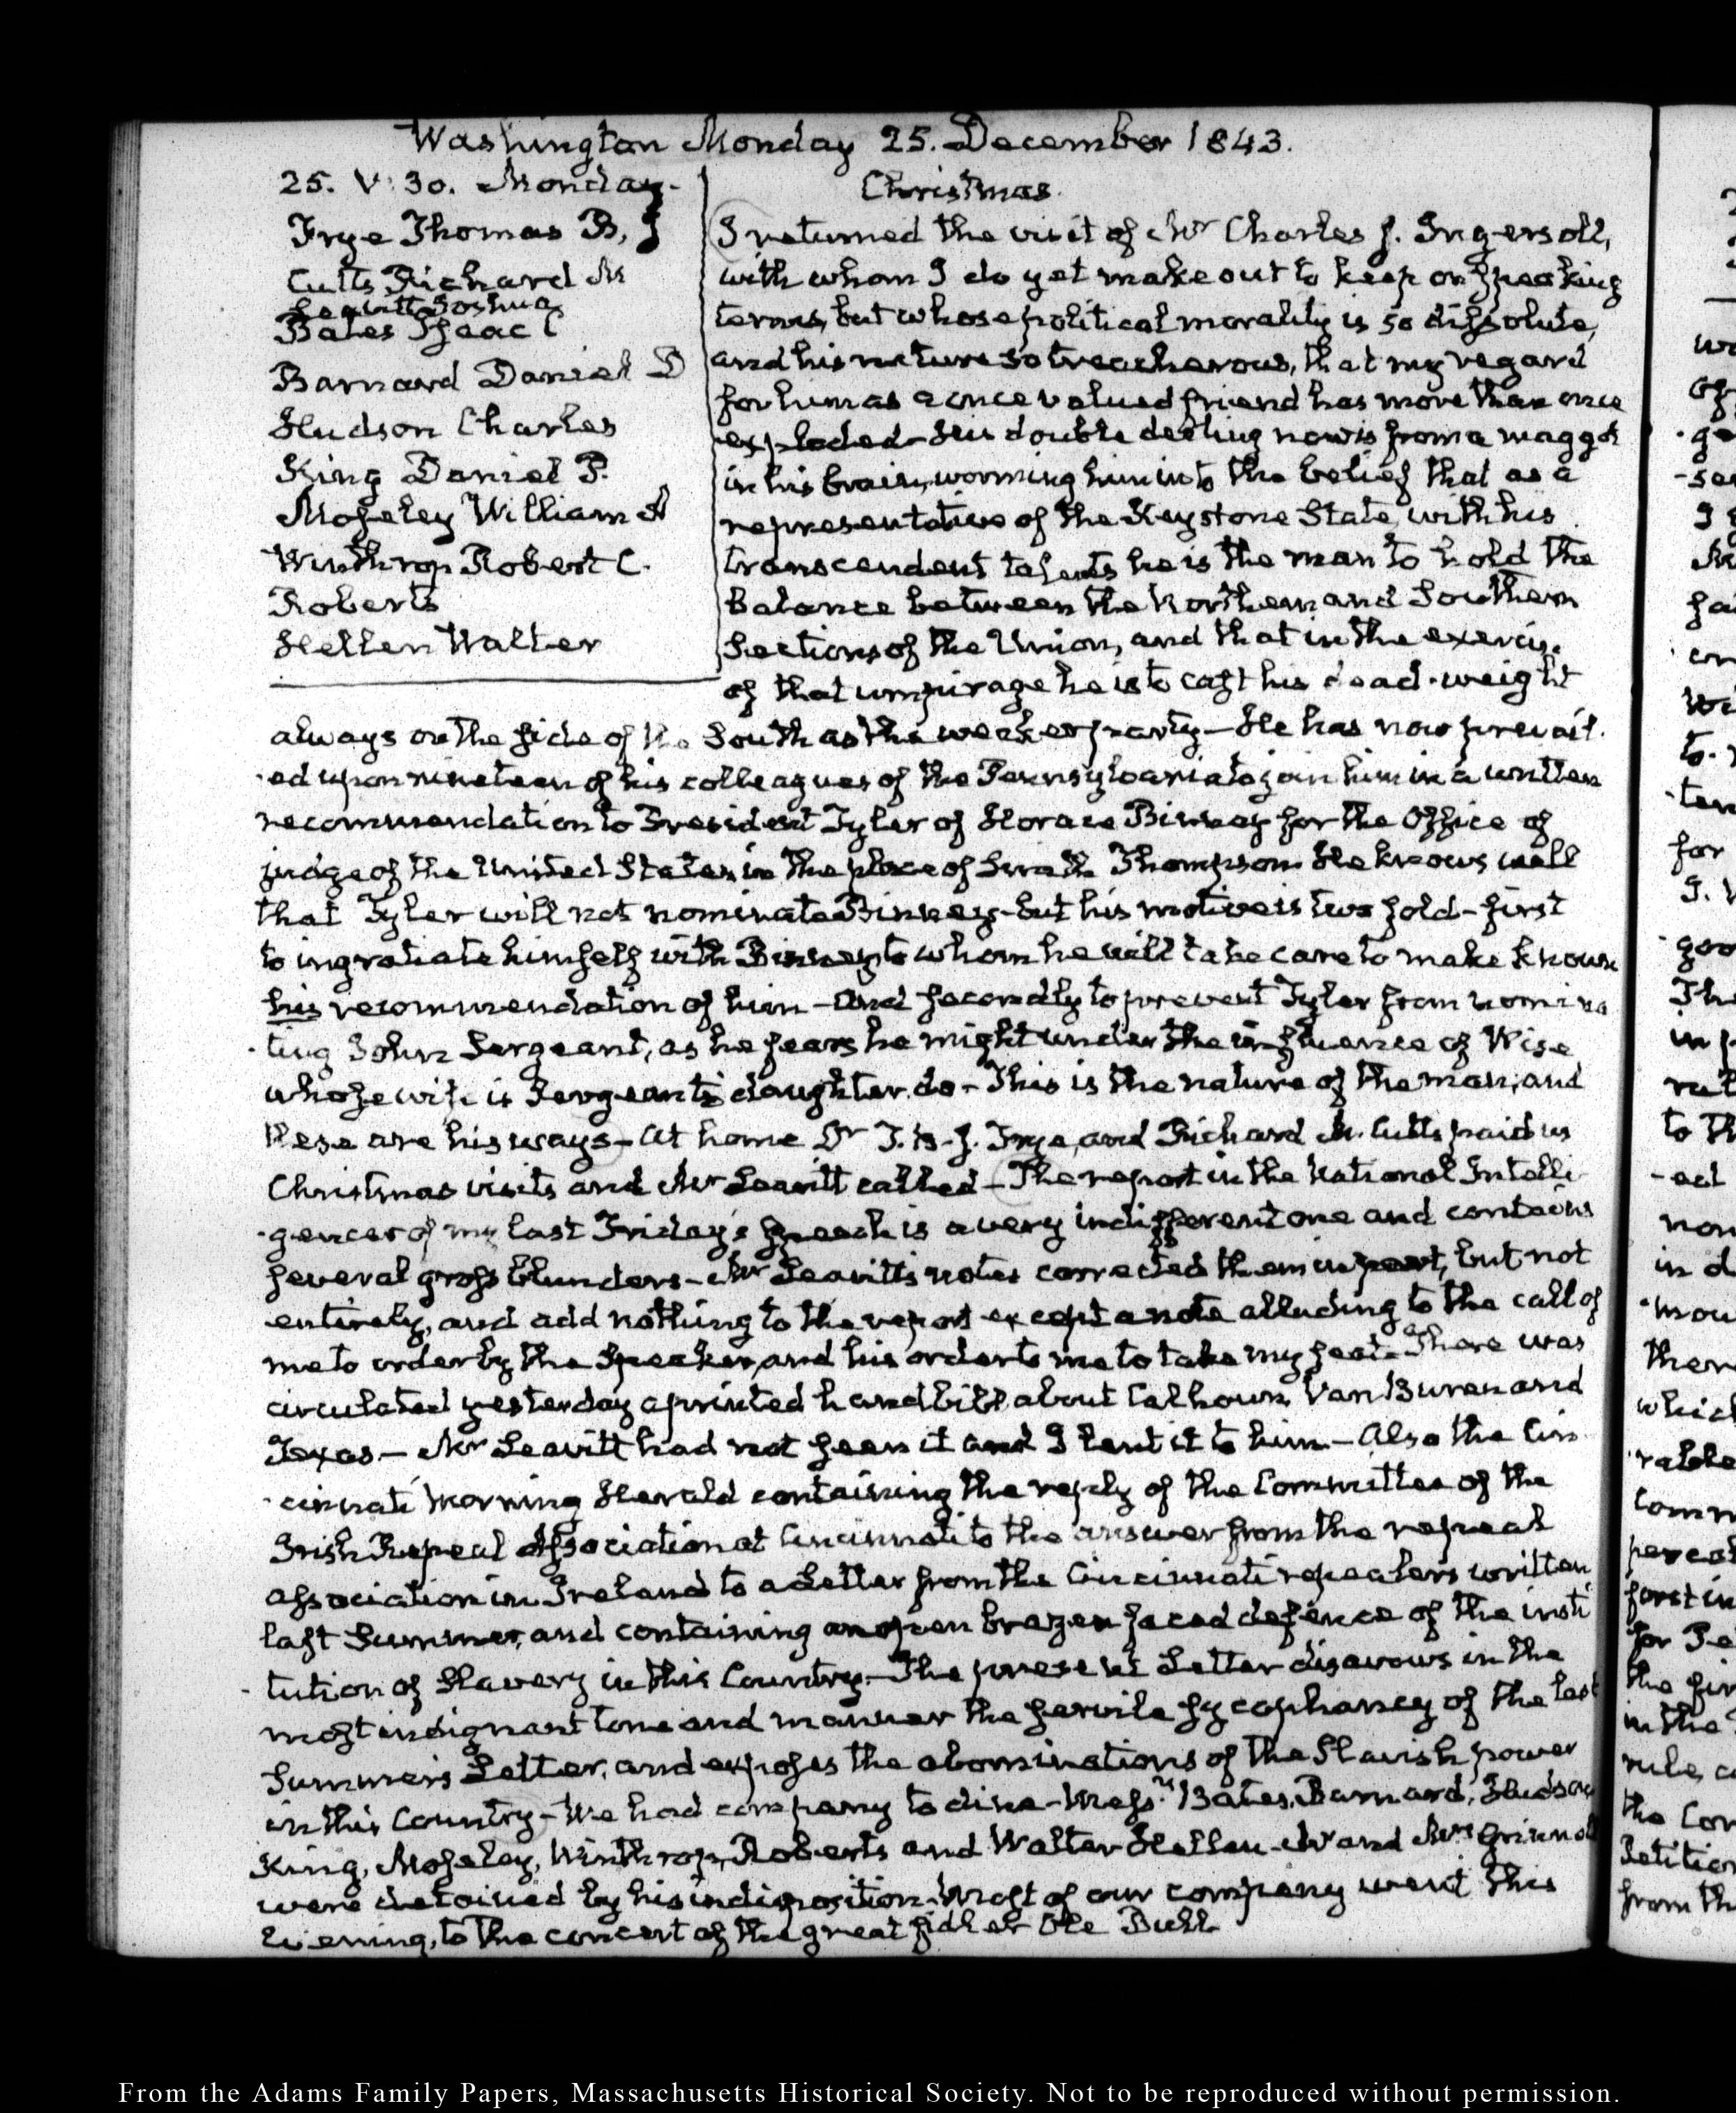 Washington Monday 25. December 1843.
25. V: 30. Monday.
Frye Thomas B, J
Cutts Richard M
Leavitt Joshua
Bates Isaac C
Barnard Daniel D
Hudson Charles
King Daniel P.
Moseley William A
Winthrop Robert C.
Roberts
Hellen Walter
Christmas.
I returned the visit of Mr Charles J. Ingersoll,
with whom I do yet make out to keep on speaking
terms, but whose political morality is so dissolute,
and his nature so treacherous, that my regard
for him as a once valued friend has more than once
exploded- His double dealing now is from a maggot
in his brain, worming him into the belief that as a
representative of the Keystone State, with his
transcendent talents he is the man to hold the
Balance between the Northern and Southern
Sections of the Union, and that in the exercise
of that umpirage he is to cast his dead-weight
always on the side of the South as the weaker party- He has now prevail-
-ed upon nineteen of his colleagues of the Pennsylvania to join him in a written
recommendation to President Tyler of Horace Binney for the Office of
judge of the United States in the place of Smith Thompson He knows well
that Tyler will not nominate Binney- but his motive is two fold- first
to ingratiate himself with Binney to whom he will take care to make known
his recommendation of him- And secondly to prevent Tyler from nomina
-ting John Sergeant, as he fears he might under the influence of Wise
whose wife is Sergeant's daughter, do- This is the nature of the man, and
these are his ways- At home Dr T. B. J. Frye, and Richard M. Cutts paid us
Christmas visits and Mr Leavitt called- The report in the National Intelli
-gencer of my last Friday's speech is a very indifferent one and contains
several gross blunders- Mr Leavitt's notes corrected them in part, but not
entirely, and add nothing to the report except a note alluding to the call of
me to order by the Speaker, and his order to me to take my seat- There was
circulated yesterday a printed handbill about Calhoun, Van Buren and
Texas- Mr Leavitt had not seen it and I lent it to him- Also the Cin
-cinnati Morning Herald containing the reply of the Committee of the
Irish Repeal Association at Cincinnati to the answer from the repeal
association in Ireland to a Letter from the Cincinnati repealers written
last Summer, and containing an open brazen faced defence of the insti
-tution of Slavery in this Country- The present Letter disavows in the
most indignant tone and manner the servile sycophancy of the last
Summer's Letter, and exposes the abominations of the Slavish power
in this Country- We had company to dine- Messrs Bates, Barnard, Hudson
King, Moseley, Winthrop, Roberts and Walter Hellen- Mr and Mrs Grinnell
were detained by his indisposition. Most of our company went this
Evening, to the concert of the great fidler Ole Bull
From the Adams Family Papers, Massachusetts Historical Society. Not to be reproduced without permission.